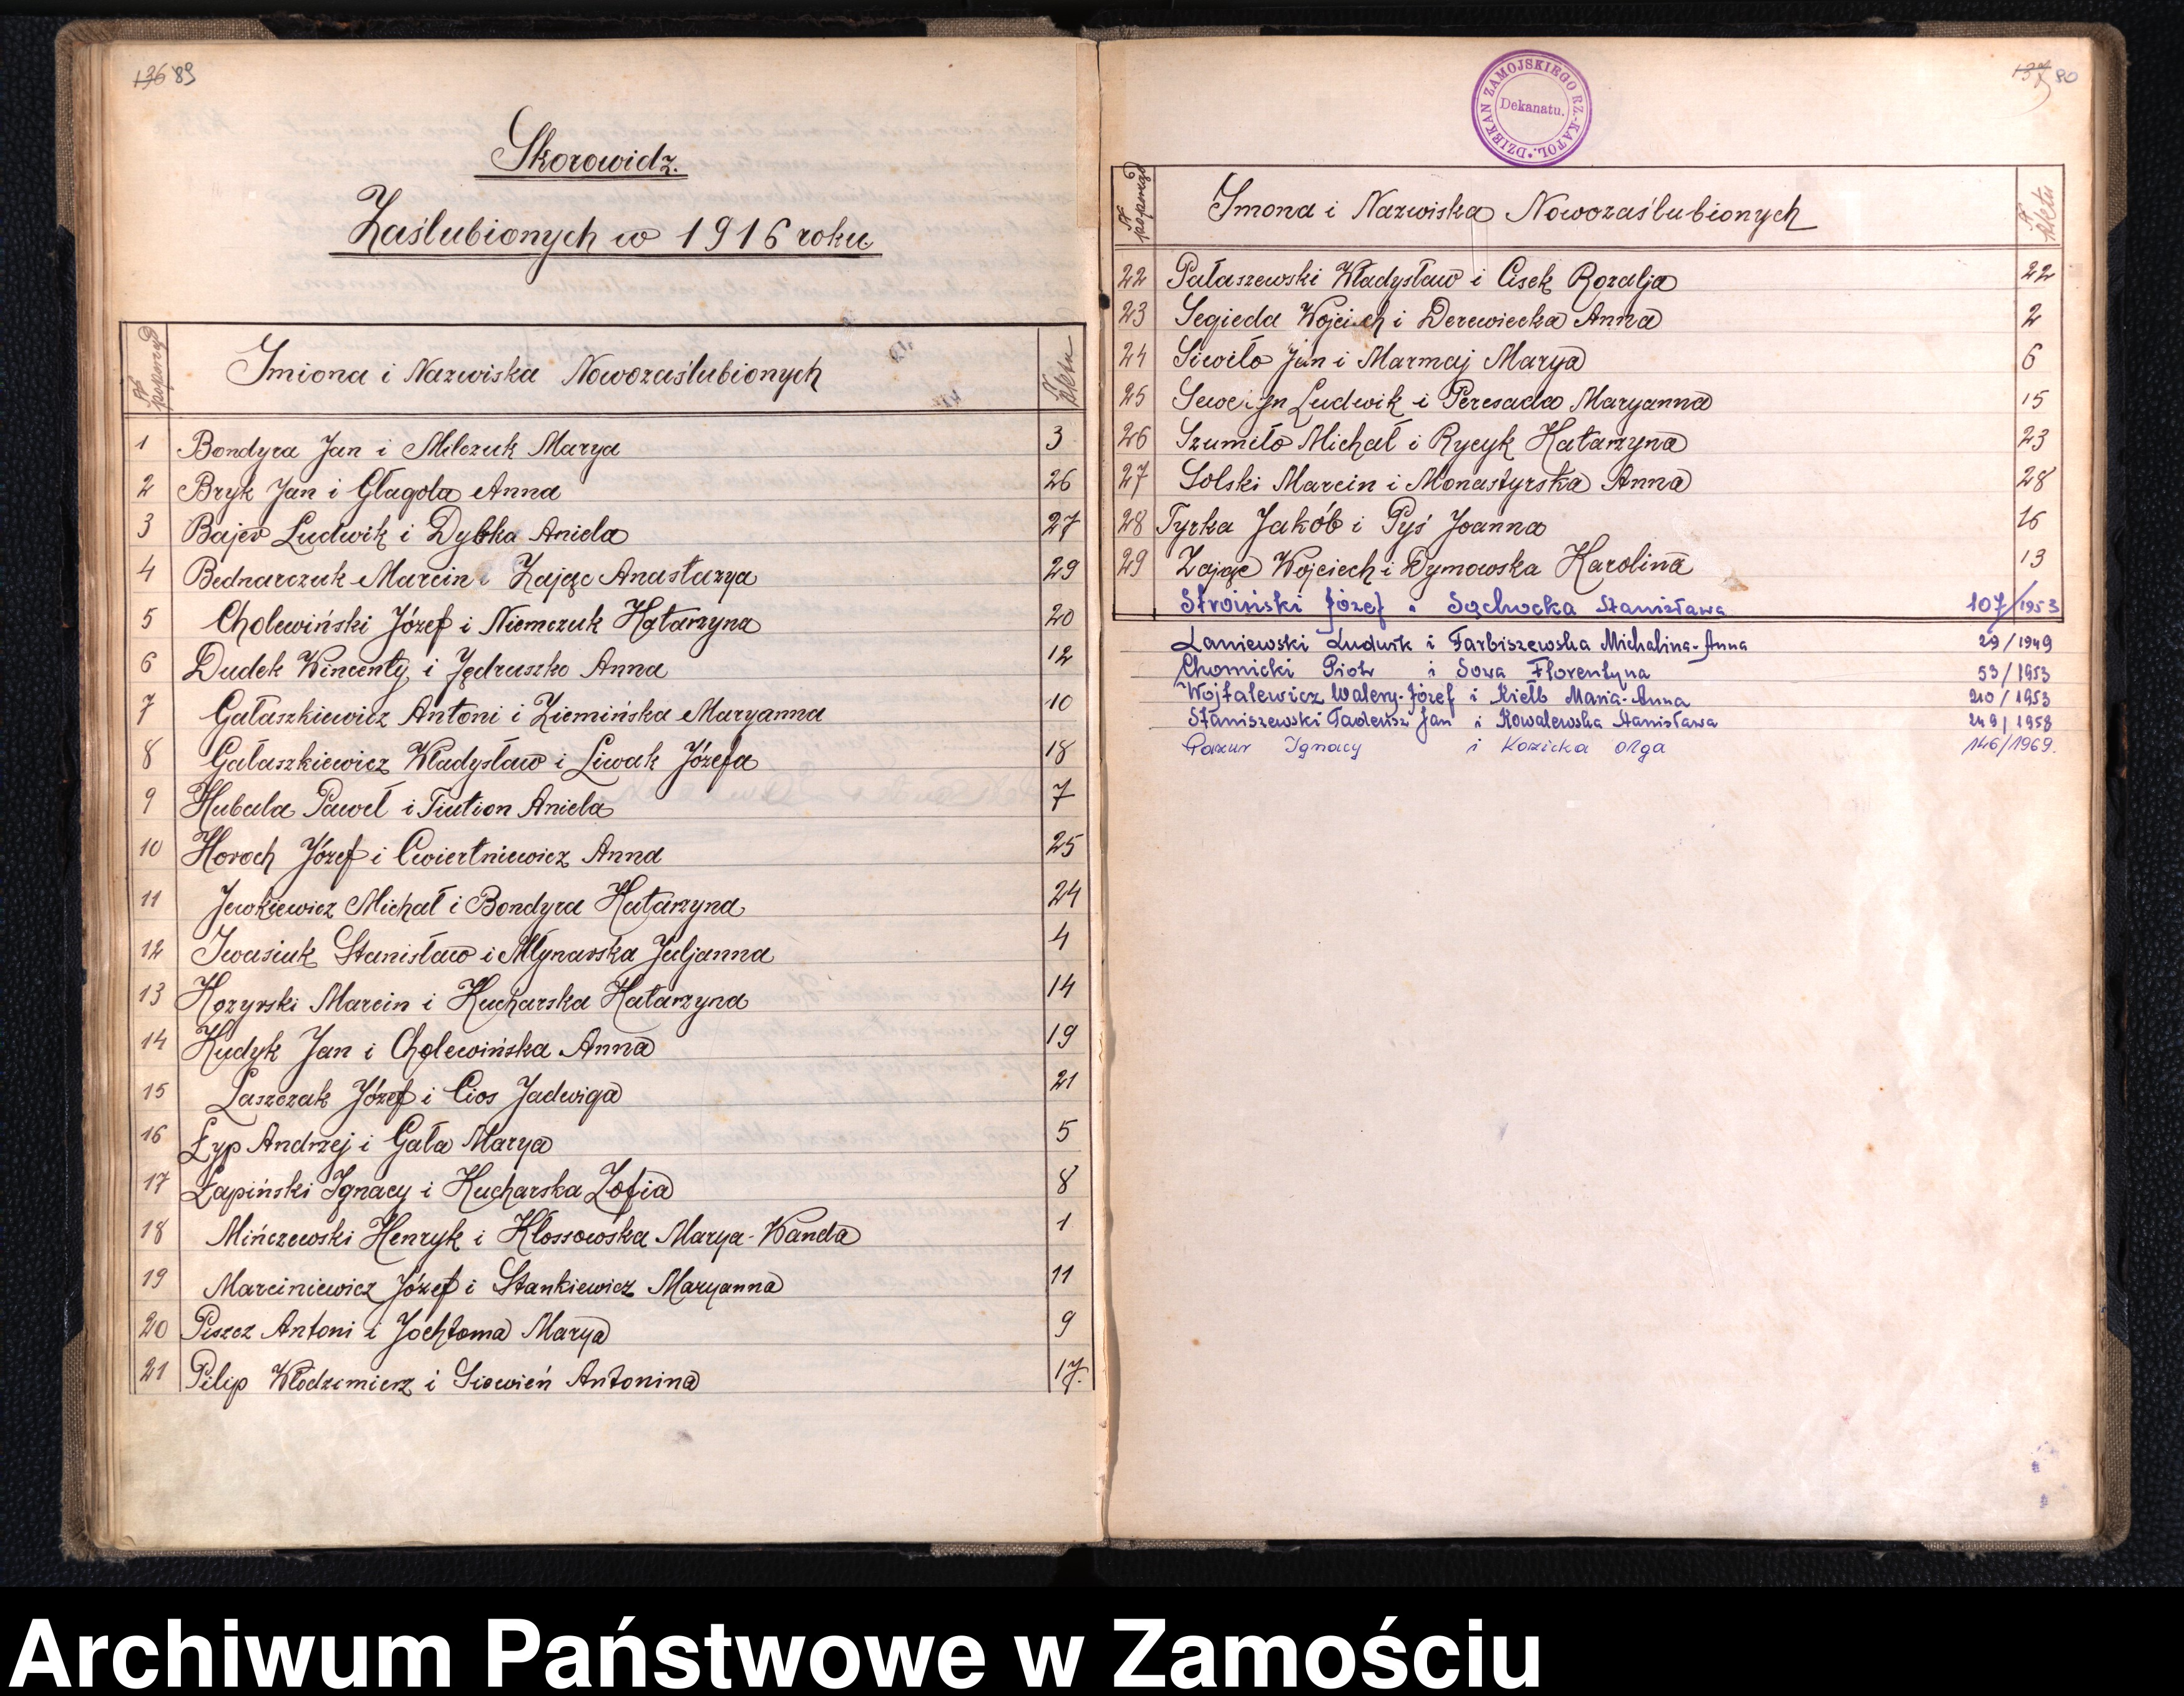 136 89
Skorowidz.
Zaślubionych w 1916 roku.
№ poporząd
Imiona i Nazwiska Nowozaślubionych
№ Aktu
1 Bondyra Jan i Milczuk Marya 3
2 Bryk Jan i Głagola Anna 26
3 Bajer Ludwik i Dybka Aniela 27
4 Bednarczuk Marcin i Zając Anastazya 29
5 Cholewiński Józef i Niemczuk Katarzyna 20
6 Dudek Wincenty i Jędruszko Anna 12
7 Gałaszkiewicz Antoni i Ziemińska Maryanna 10
8 Gałaszkiewicz Władysław i Liwak Józefa 18
9 Hubala Paweł i Tiution Aniela 7
10 Horoch Józef i Cwiertniewicz Anna 25
11 Jewkiewicz Michał i Bondyra Katarzyna 24
12 Iwasiuk Stanisław i Młynarska Juljanna 4
13 Kozyrski Marcin i Kucharska Katarzyna 14
14 Kudyk Jan i Cholewińska Anna 19
15 Laszczak Józef i Cios Jadwiga 21
16 Łyp Andrzej i Gała Marya 5
17 Łapiński Ignacy i Kucharska Zofia 8
18 Mińczewski Henryk i Kłossowska Marya-Wanda 1
19 Marciniewicz Józef i Stankiewicz Maryanna 11
20 Piszcz Antoni i Jochtoma Marya 9
21 Pilip Włodzimierz i Siowień Antonina 17.
137 90
DZIEKAN ZAMOJSKIEGO RZ.-KATOL.
Dekanatu.
№ poporząd
Imona i Nazwiska Nowozaślubionych
№ Aktu
22 Pałaszewski Władysław i Cisek Rozalja 22
23 Segieda Wojciech i Derewiecka Anna 2
24 Siwiło Jan i Marmaj Marya 6
25 Seweryn Ludwik i Peresada Maryanna 15
26 Szumiło Michał i Rycyk Katarzyna 23
27 Solski Marcin i Monastyrska Anna 28
28 Tyrka Jakób i Pyś Joanna 16
29 Zając Wojciech i Dymowska Karolina 13
Stroiński Józef i Sąchocka Stanisława 107/1953
Łaniewski Ludwik i Farbiszewska Michalina-Anna 29/1949
Chomicki Piotr i Sowa Florentyna 53/1953
Wojtalewicz Walery-Józef i Kiełb Maria-Anna 210/1953
Staniszewski Tadeusz Jan i Kowalewska Stanisława 249/1958
Pazur Ignacy i Kozicka Olga 146/1969.
Archiwum Państwowe w Zamościu